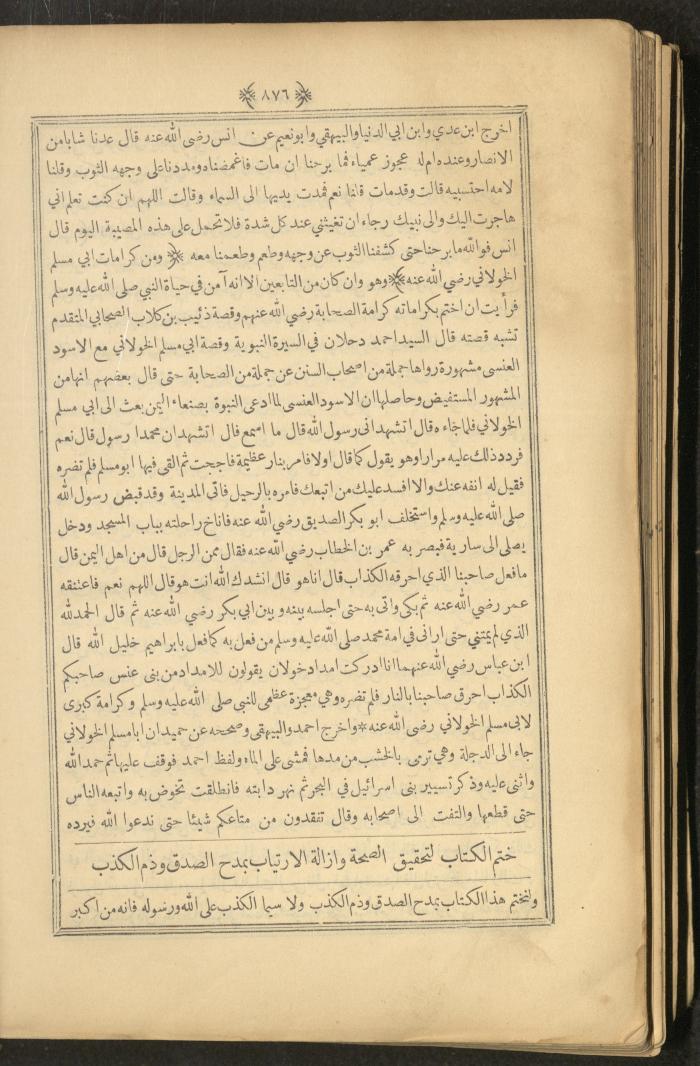 ﴿ ٨٧٦ ﴾
اخرج ابن عدي وابن ابي الدنيا والبيهقي وابو نعيم عن انس رضى الله عنه قال عدنا شابا من
الانصار وعنده ام له عجوز عمياء فما برحنا ان مات فاغمضناه ومددنا على وجهه الثوب وقلنا
لامه احتسبيه قالت وقد مات قلنا نعم فمدت يديها الى السماء وقالت اللهم ان كنت تعلم اني
هاجرت اليك والى نبيك رجاء ان تغيثني عند كل شدة فلا تحمل على هذه المصيبة اليوم قال
انس فوالله ما برحنا حتى كشفنا الثوب عن وجهه وطعم وطعمنا معه ﴿ ومن كرامات ابي مسلم
الخولاني رضي الله عنه ﴾ وهو وان كان من التابعين الا انه آمن في حياة النبي صلى الله عليه وسلم
فرأيت ان اختم بكراماته كرامة الصحابة رضي الله عنهم وقصة ذئيب بن كلاب الصحابي المتقدم
تشبه قصته قال السيد احمد دحلان في السيرة النبوية وقصة ابي مسلم الخولاني مع الاسود
العنسى مشهورة رواها جملة من اصحاب السنن عن جملة من الصحابة حتى قال بعضهم انها من
المشهور المستفيض وحاصلها ان الاسود العنسى لما ادعى النبوة بصنعاء اليمن بعث الى ابي مسلم
الخولاني فلما جاءه قال اتشهد انى رسول الله قال ما اسمع قال اتشهد ان محمدا رسول قال نعم
فردد ذلك عليه مرارا وهو يقول كما قال اولا فامر بنار عظيمة فاججت ثم القى فيها ابو مسلم فلم تضره
فقيل له انفه عنك والا افسد عليك من اتبعك فامره بالرحيل فاتى المدينة وقد قبض رسول الله
صلى الله عليه وسلم واستخلف ابو بكر الصديق رضى الله عنه فاناخ راحلته بباب المسجد ودخل
يصلى الى سارية فبصر به عمر بن الخطاب رضى الله عنه فقال ممن الرجل قال من اهل اليمن قال
ما فعل صاحبنا الذي احرقه الكذاب قال انا هو قال انشدك الله انت هو قال اللهم نعم فاعتنقه
عمر رضى الله عنه ثم بكى واتى به حتى اجلسه بينه وبين ابي بكر رضي الله عنه ثم قال الحمد لله
الذي لم يمتني حتى ارانى في امة محمد صلى الله عليه وسلم من فعل به كما فعل بابراهيم خليل الله قال
ابن عباس رضي الله عنهما انا ادركت امداد خولان يقولون للامداد من بنى عنس صاحبكم
الكذاب احرق صاحبنا بالنار فلم تضره وهي معجزة عظمى للنبي صلى الله عليه وسلم وكرامة كبرى
لابي مسلم الخولاني رضي الله عنه * واخرج احمد والبيهقي وصححه عن حميد ان ابا مسلم الخولاني
جاء الى الدجلة وهي ترمى بالخشب من مدها فمشى على الماء ولفظ احمد فوقف عليها ثم حمد الله
واثنى عليه وذكر تسيير بنى اسرائيل في البحر ثم نهر دابته فانطلقت تخوض به واتبعه الناس
حتى قطعها والتفت الى اصحابه وقال تفقدون من متاعكم شيئا حتى ندعوا الله فيرده
ختم الكتاب لتحقيق الصحة وازالة الارتياب بمدح الصدق وذم الكذب
ولنختم هذا الكتاب بمدح الصدق وذم الكذب ولا سيما الكذب على الله ورسوله فانه من اكبر